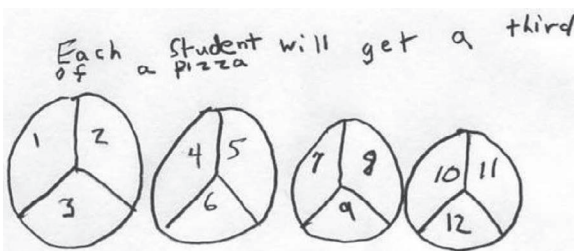 Each student will get a third
of a pizza
1 2 3
4 5 6
7 8 9
10 11 12